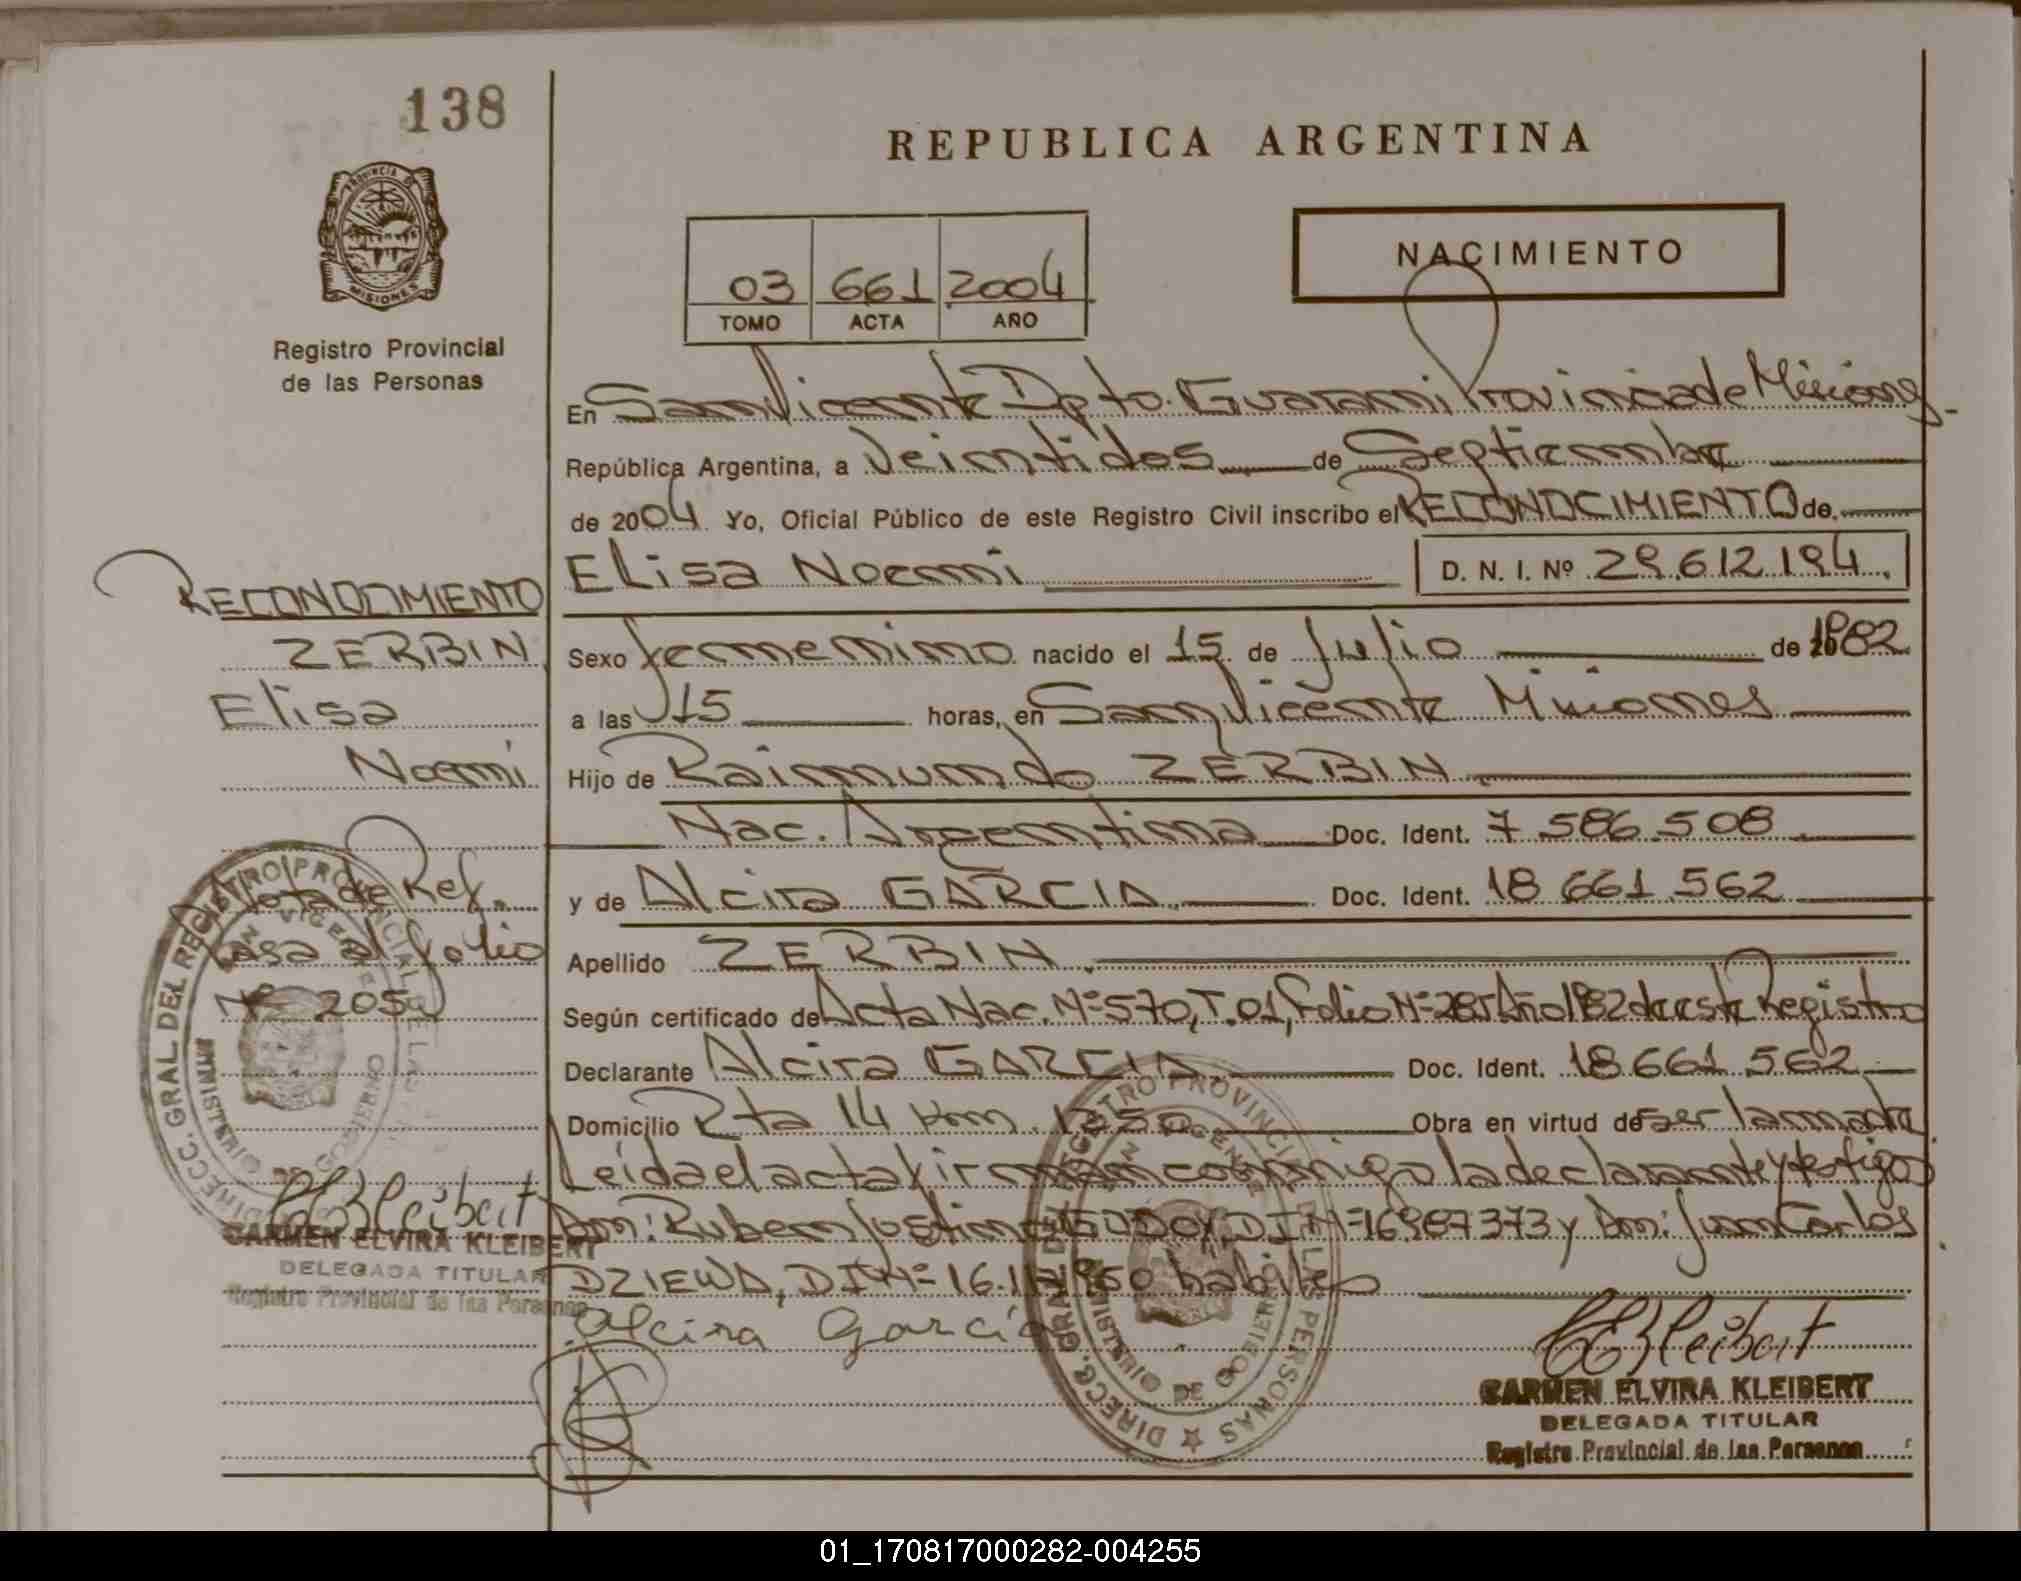 138
REPUBLICA ARGENTINA
PROVINCIA DE
MISIONES
Registro Provincial
de las Personas
03 661 2004
TOMO ACTA AÑO
NACIMIENTO
En San Vicente Dpto. Guarani Provincia de Misiones
República Argentina, a Veintidos de Septiembre
de 2004 Yo, Oficial Público de este Registro Civil inscribo el RECONOCIMIENTO de
Elisa Noemi D. N. I. Nº 29.612.194
Sexo femenino nacido el 15 de Julio de 1982
a las 15 horas, en San Vicente Misiones
Hijo de Raimundo ZERBIN
Nac. Argentina Doc. Ident. 7.586.508
y de Alcira GARCIA Doc. Ident. 18.661.562
Apellido ZERBIN
Según certificado de Acta Nac. Nº 570, T. 01, Folio Nº 285 Año 1982 de este Registro
Declarante Alcira GARCIA Doc. Ident. 18.661.562
Domicilio Rta 14 Km. Obra en virtud de ser la madre
Leída el acta firman conmigo la declarante y testigos
Dn: Ruben Justino GODOY, DI Nº 16.987.373 y Dn: Juan Carlos
DZIEWA, DI Nº 16. habiles
Alcira García
CARMEN ELVIRA KLEIBERT
DELEGADA TITULAR
Registro Provincial de las Personas
RECONOCIMIENTO
ZERBIN
Elisa
Noemi
Nota de Ref.
Pasa al folio
Nº 205
CARMEN ELVIRA KLEIBERT
DELEGADA TITULAR
Registro Provincial de las Personas
DIRECC. GRAL DEL REGISTRO PROVINCIAL DE LAS PERSONAS
SAN VICENTE
MINISTERIO DE GOBIERNO
01_170817000282-004255